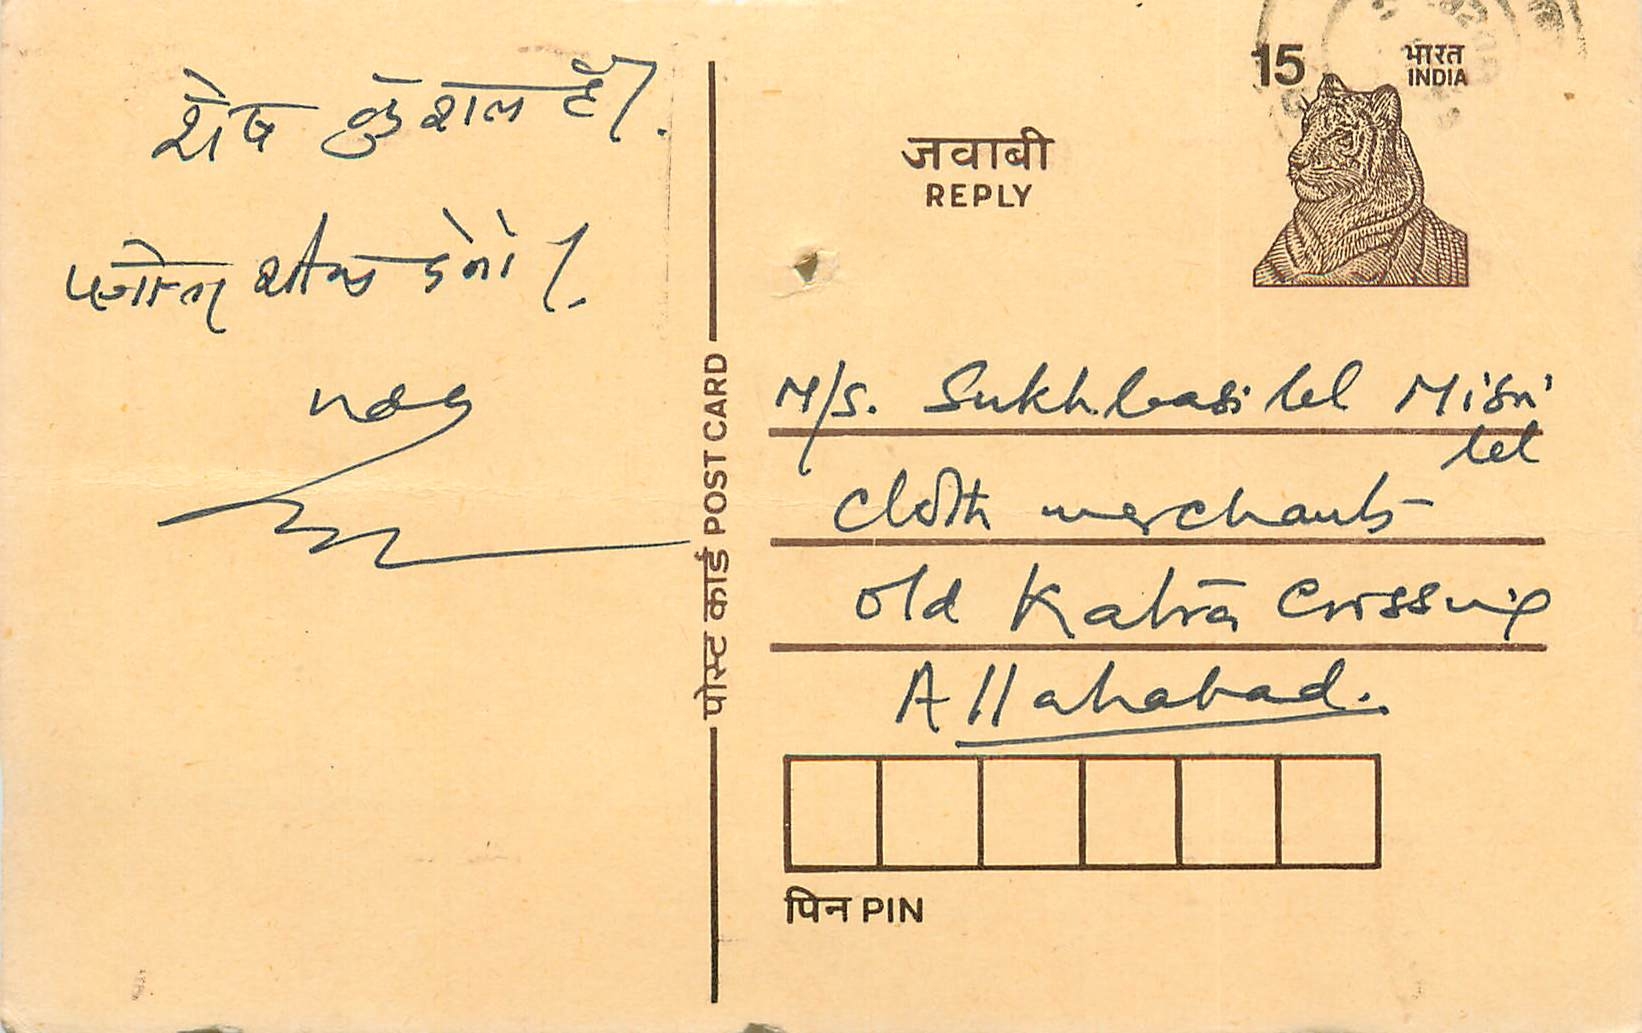 शेष कुशल है।
शीघ्र देना।
15 भारत
INDIA
जवाबी
REPLY
पोस्ट कार्ड POST CARD
M/s. Sukhbasi lal Misri
lal
Cloth merchants
Old Katra Crossing
Allahabad.
पिन PIN